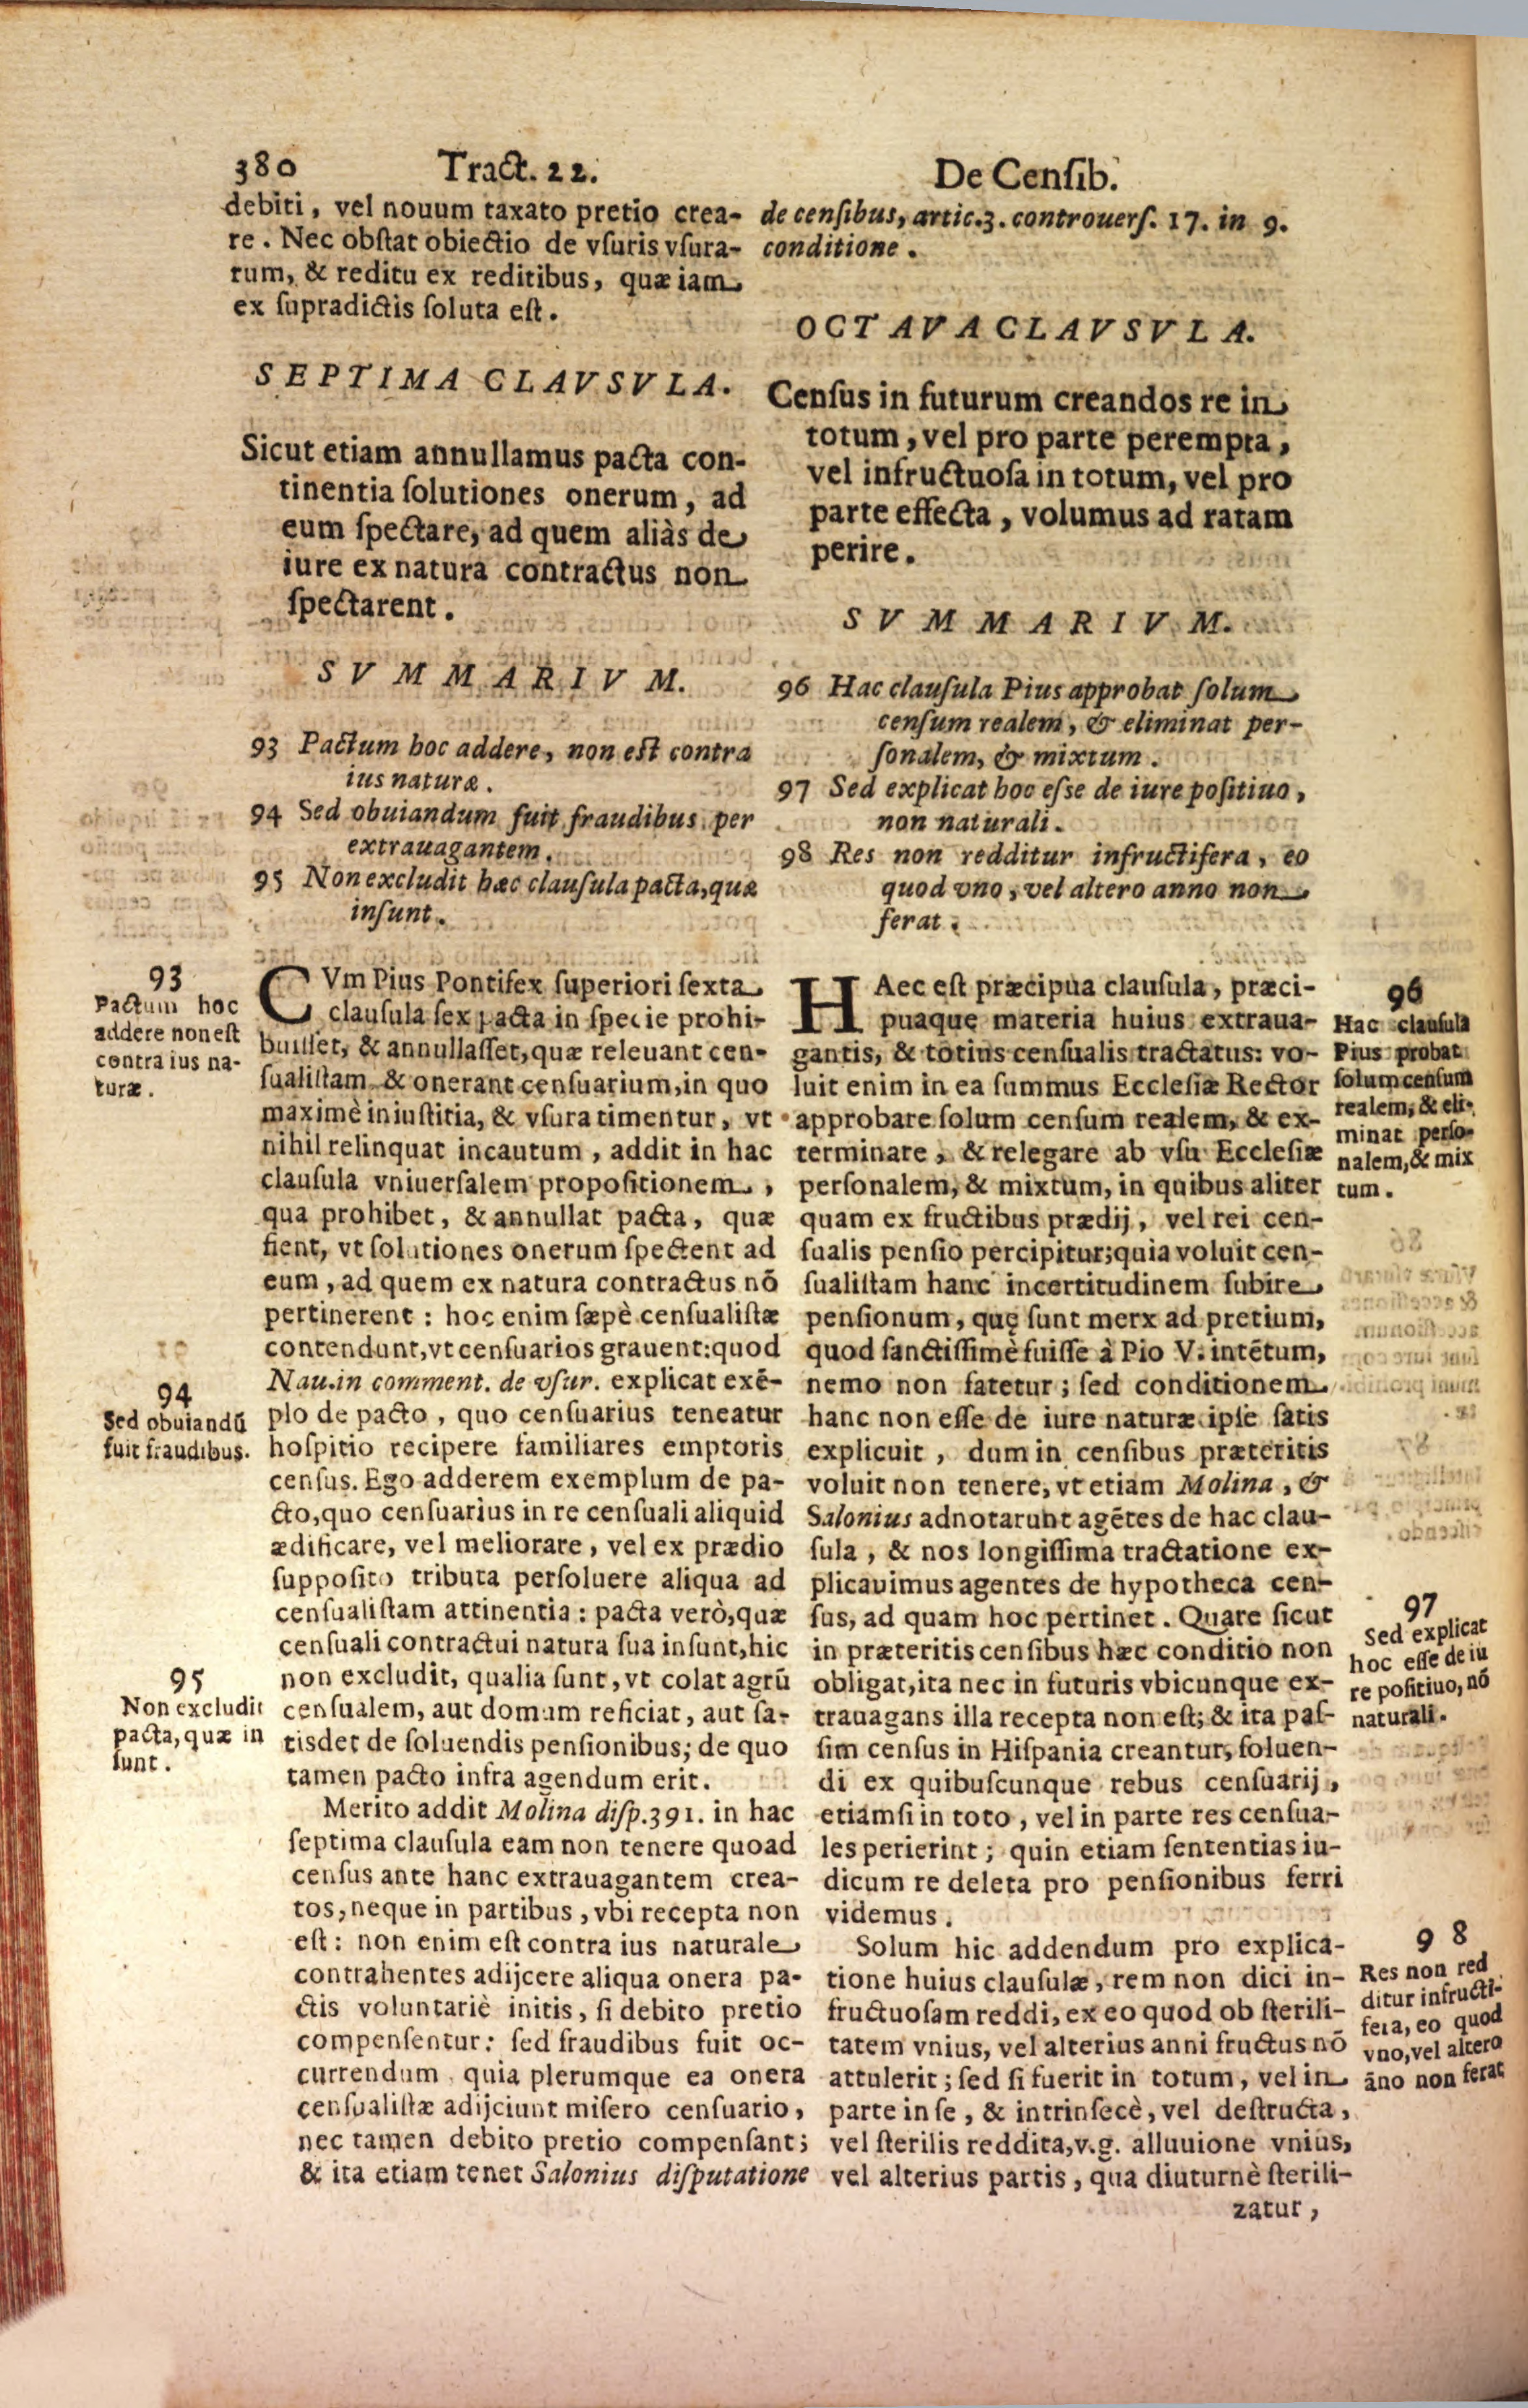 380 Tract. 22. De Censib.
debiti, vel nouum taxato pretio crea-
re. Nec obſtat obiectio de vſuris vſura-
rum, & reditu ex reditibus, quæ iam
ex ſupradictis ſoluta eſt.
SEPTIMA CLAVSVLA.
Sicut etiam annullamus pacta con-
tinentia ſolutiones onerum, ad
eum ſpectare, ad quem aliàs de
iure ex natura contractus non
ſpectarent.
SVMMARIVM.
93 Pactum hoc addere, non eſt contra
ius naturæ.
94 Sed obuiandum fuit fraudibus per
extrauagantem.
95 Non excludit hæc clauſula pacta, quæ
inſunt.
93
Pactum hoc
addere non eſt
contra ius na-
turæ.
CVm Pius Pontifex ſuperiori ſexta
clauſula ſex pacta in ſpecie prohi-
buiſſet, & annullaſſet, quæ releuant cen-
ſualiſtam & onerant cenſuarium, in quo
maximè iniuſtitia, & vſura timentur, vt
nihil relinquat incautum, addit in hac
clauſula vniuerſalem propoſitionem,
qua prohibet, & annullat pacta, quæ
fient, vt ſolutiones onerum ſpectent ad
eum, ad quem ex natura contractus nō
pertinerent: hoc enim ſæpè cenſualiſtæ
contendunt, vt cenſuarios grauent: quod
Nau. in comment. de vſur. explicat exē-
plo de pacto, quo cenſuarius teneatur
hoſpitio recipere familiares emptoris
cenſus. Ego adderem exemplum de pa-
cto, quo cenſuarius in re cenſuali aliquid
ædificare, vel meliorare, vel ex prædio
ſuppoſito tributa perſoluere aliqua ad
cenſualiſtam attinentia: pacta verò, quæ
cenſuali contractui natura ſua inſunt, hic
non excludit, qualia ſunt, vt colat agrū
cenſualem, aut domum reficiat, aut ſa-
tisdet de ſoluendis penſionibus; de quo
tamen pacto infra agendum erit.
94
Sed obuiandū
fuit fraudibus.
95
Non excludit
pacta, quæ in
ſunt.
Merito addit Molina diſp. 391. in hac
ſeptima clauſula eam non tenere quoad
cenſus ante hanc extrauagantem crea-
tos, neque in partibus, vbi recepta non
eſt: non enim eſt contra ius naturale
contrahentes adijcere aliqua onera pa-
ctis voluntariè initis, ſi debito pretio
compenſentur: ſed fraudibus fuit oc-
currendum quia plerumque ea onera
cenſualiſtæ adijciunt miſero cenſuario,
nec tamen debito pretio compenſant;
& ita etiam tenet Salonius diſputatione
de cenſibus, artic. 3. controuerſ. 17. in 9.
conditione.
OCTAVA CLAVSVLA.
Cenſus in futurum creandos re in
totum, vel pro parte perempta,
vel infructuoſa in totum, vel pro
parte effecta, volumus ad ratam
perire.
SVMMARIVM.
96 Hac clauſula Pius approbat ſolum
cenſum realem, & eliminat per-
ſonalem, & mixtum.
97 Sed explicat hoc eſſe de iure poſitiuo,
non naturali.
98 Res non redditur infructifera, eo
quod vno, vel altero anno non
ferat.
HAec eſt præcipua clauſula, præci-
puaquę materia huius extraua-
gantis, & totius cenſualis tractatus: vo-
luit enim in ea ſummus Eccleſiæ Rector
approbare ſolum cenſum realem, & ex-
terminare, & relegare ab vſu Eccleſiæ
perſonalem, & mixtum, in quibus aliter
quam ex fructibus prædij, vel rei cen-
ſualis penſio percipitur; quia voluit cen-
ſualiſtam hanc incertitudinem ſubire
penſionum, quę ſunt merx ad pretium,
quod ſanctiſſimè fuiſſe à Pio V. intētum,
nemo non fatetur; ſed conditionem
hanc non eſſe de iure naturæ ipſe ſatis
explicuit, dum in cenſibus præteritis
voluit non tenere, vt etiam Molina, &
Salonius adnotarunt agētes de hac clau-
ſula, & nos longiſſima tractatione ex-
plicauimus agentes de hypotheca cen-
ſus, ad quam hoc pertinet. Quare ſicut
in præteritis cenſibus hæc conditio non
obligat, ita nec in futuris vbicunque ex-
trauagans illa recepta non eſt; & ita paſ-
ſim cenſus in Hiſpania creantur, ſoluen-
di ex quibuſcunque rebus cenſuarij,
etiamſi in toto, vel in parte res cenſua-
les perierint; quin etiam ſententias iu-
dicum re deleta pro penſionibus ferri
videmus.
96
Hac clauſula
Pius probat
ſolum cenſum
realem, & eli-
minat perſo-
nalem, & mix
tum.
97
Sed explicat
hoc eſſe de iu
re poſitiuo, nō
naturali.
Solum hic addendum pro explica-
tione huius clauſulæ, rem non dici in-
fructuoſam reddi, ex eo quod ob ſterili-
tatem vnius, vel alterius anni fructus nō
attulerit; ſed ſi fuerit in totum, vel in
parte in ſe, & intrinſecè, vel deſtructa,
vel ſterilis reddita, v.g. alluuione vnius,
vel alterius partis, qua diuturnè ſterili-
zatur,
98
Res non red
ditur infructi-
fera, eo quod
vno, vel altero
āno non ferat